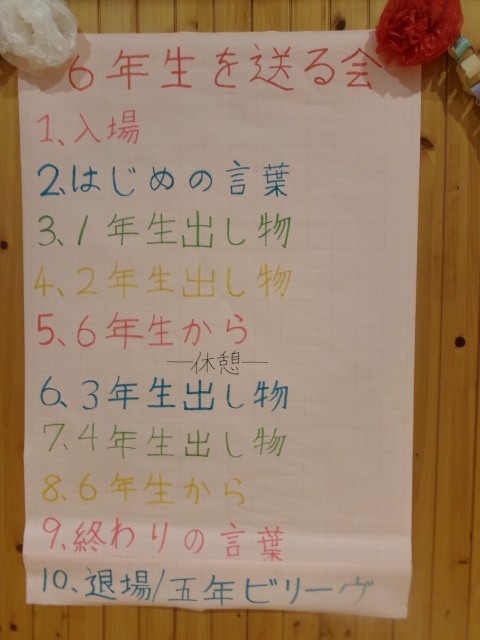 6年生を送る会
1、入場
2、はじめの言葉
3、1年生出し物
4、2年生出し物
5、6年生から
―休憩―
6、3年生出し物
7、4年生出し物
8、6年生から
9、終わりの言葉
10、退場/五年ビリーヴ